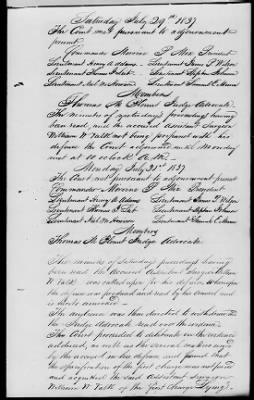 Saturday July 29th 1837
The Court met pursuant to adjournment
present
Commander Mervine P Mix President
Lieutenant Henry A Adams Lieutenant James P Wilson
Lieutenant Thomas Lieutenant Stephen Johnson
Lieutenant Lieutenant Samuel E Munn
Members
Thomas M Judge Advocate
The minutes of yesterday's proceedings having
been read, and the accused Assistant Surgeon
William W Valk not being prepared with his
defence the Court adjourned until Monday
next at 10 o'clock A.M.
Monday July 31st 1837
The Court met pursuant to adjournment present
Commander Mervine P Mix President
Lieutenant Henry A Adams Lieutenant James P Wilson
Lieutenant Thomas Lieutenant Stephen Johnson
Lieutenant Lieutenant Samuel E Munn
Members
Thomas M Judge Advocate
The minutes of Saturday's proceedings having
been read the accused Assistant Surgeon William
W Valk was called upon for his defence, whereupon
the defence was produced and read by his counsel and
is hereto annexed
The audience was then directed to withdraw
the Judge Advocate read over the evidence
The Court proceeded to deliberate on the evidence
adduced, as well as the several matters urged
by the accused in his defence and found that
the specification of the first charge was not proved
and acquitted the said Assistant Surgeon
William W Valk of the first charge